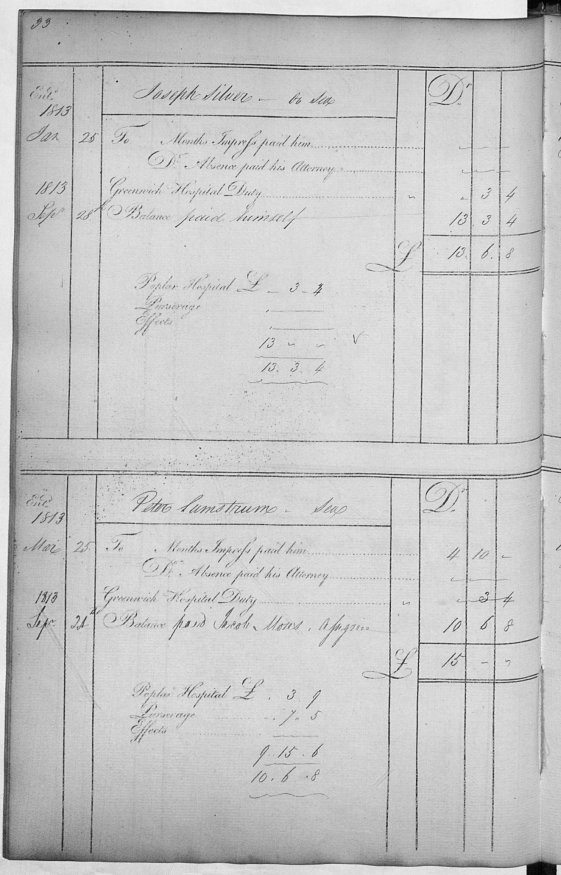 33
Ent.
1813
Joseph Silver — Sea
Dr.
Jan 25 To Months Impress paid him
Do. Absence paid his Attorney
1813 Greenwich Hospital Duty " " 3 4
Sepr 28th Balance paid himself 13 3 4
£ 13. 6. 8
Poplar Hospital £ — 3 4
Pursorage
Effects
13 " "
13. 3. 4
Ent.
1813
Sea
Dr.
Mar 25 To Months Impress paid him 4 10 -
Do. Absence paid his Attorney
1813 Greenwich Hospital Duty " " 3 4
Sepr Balance paid Jacob 10 6 8
£ 15 - "
Poplar Hospital £ . 3. 9
Pursorage . 7. 5
Effects
9. 15. 6
10. 6. 8